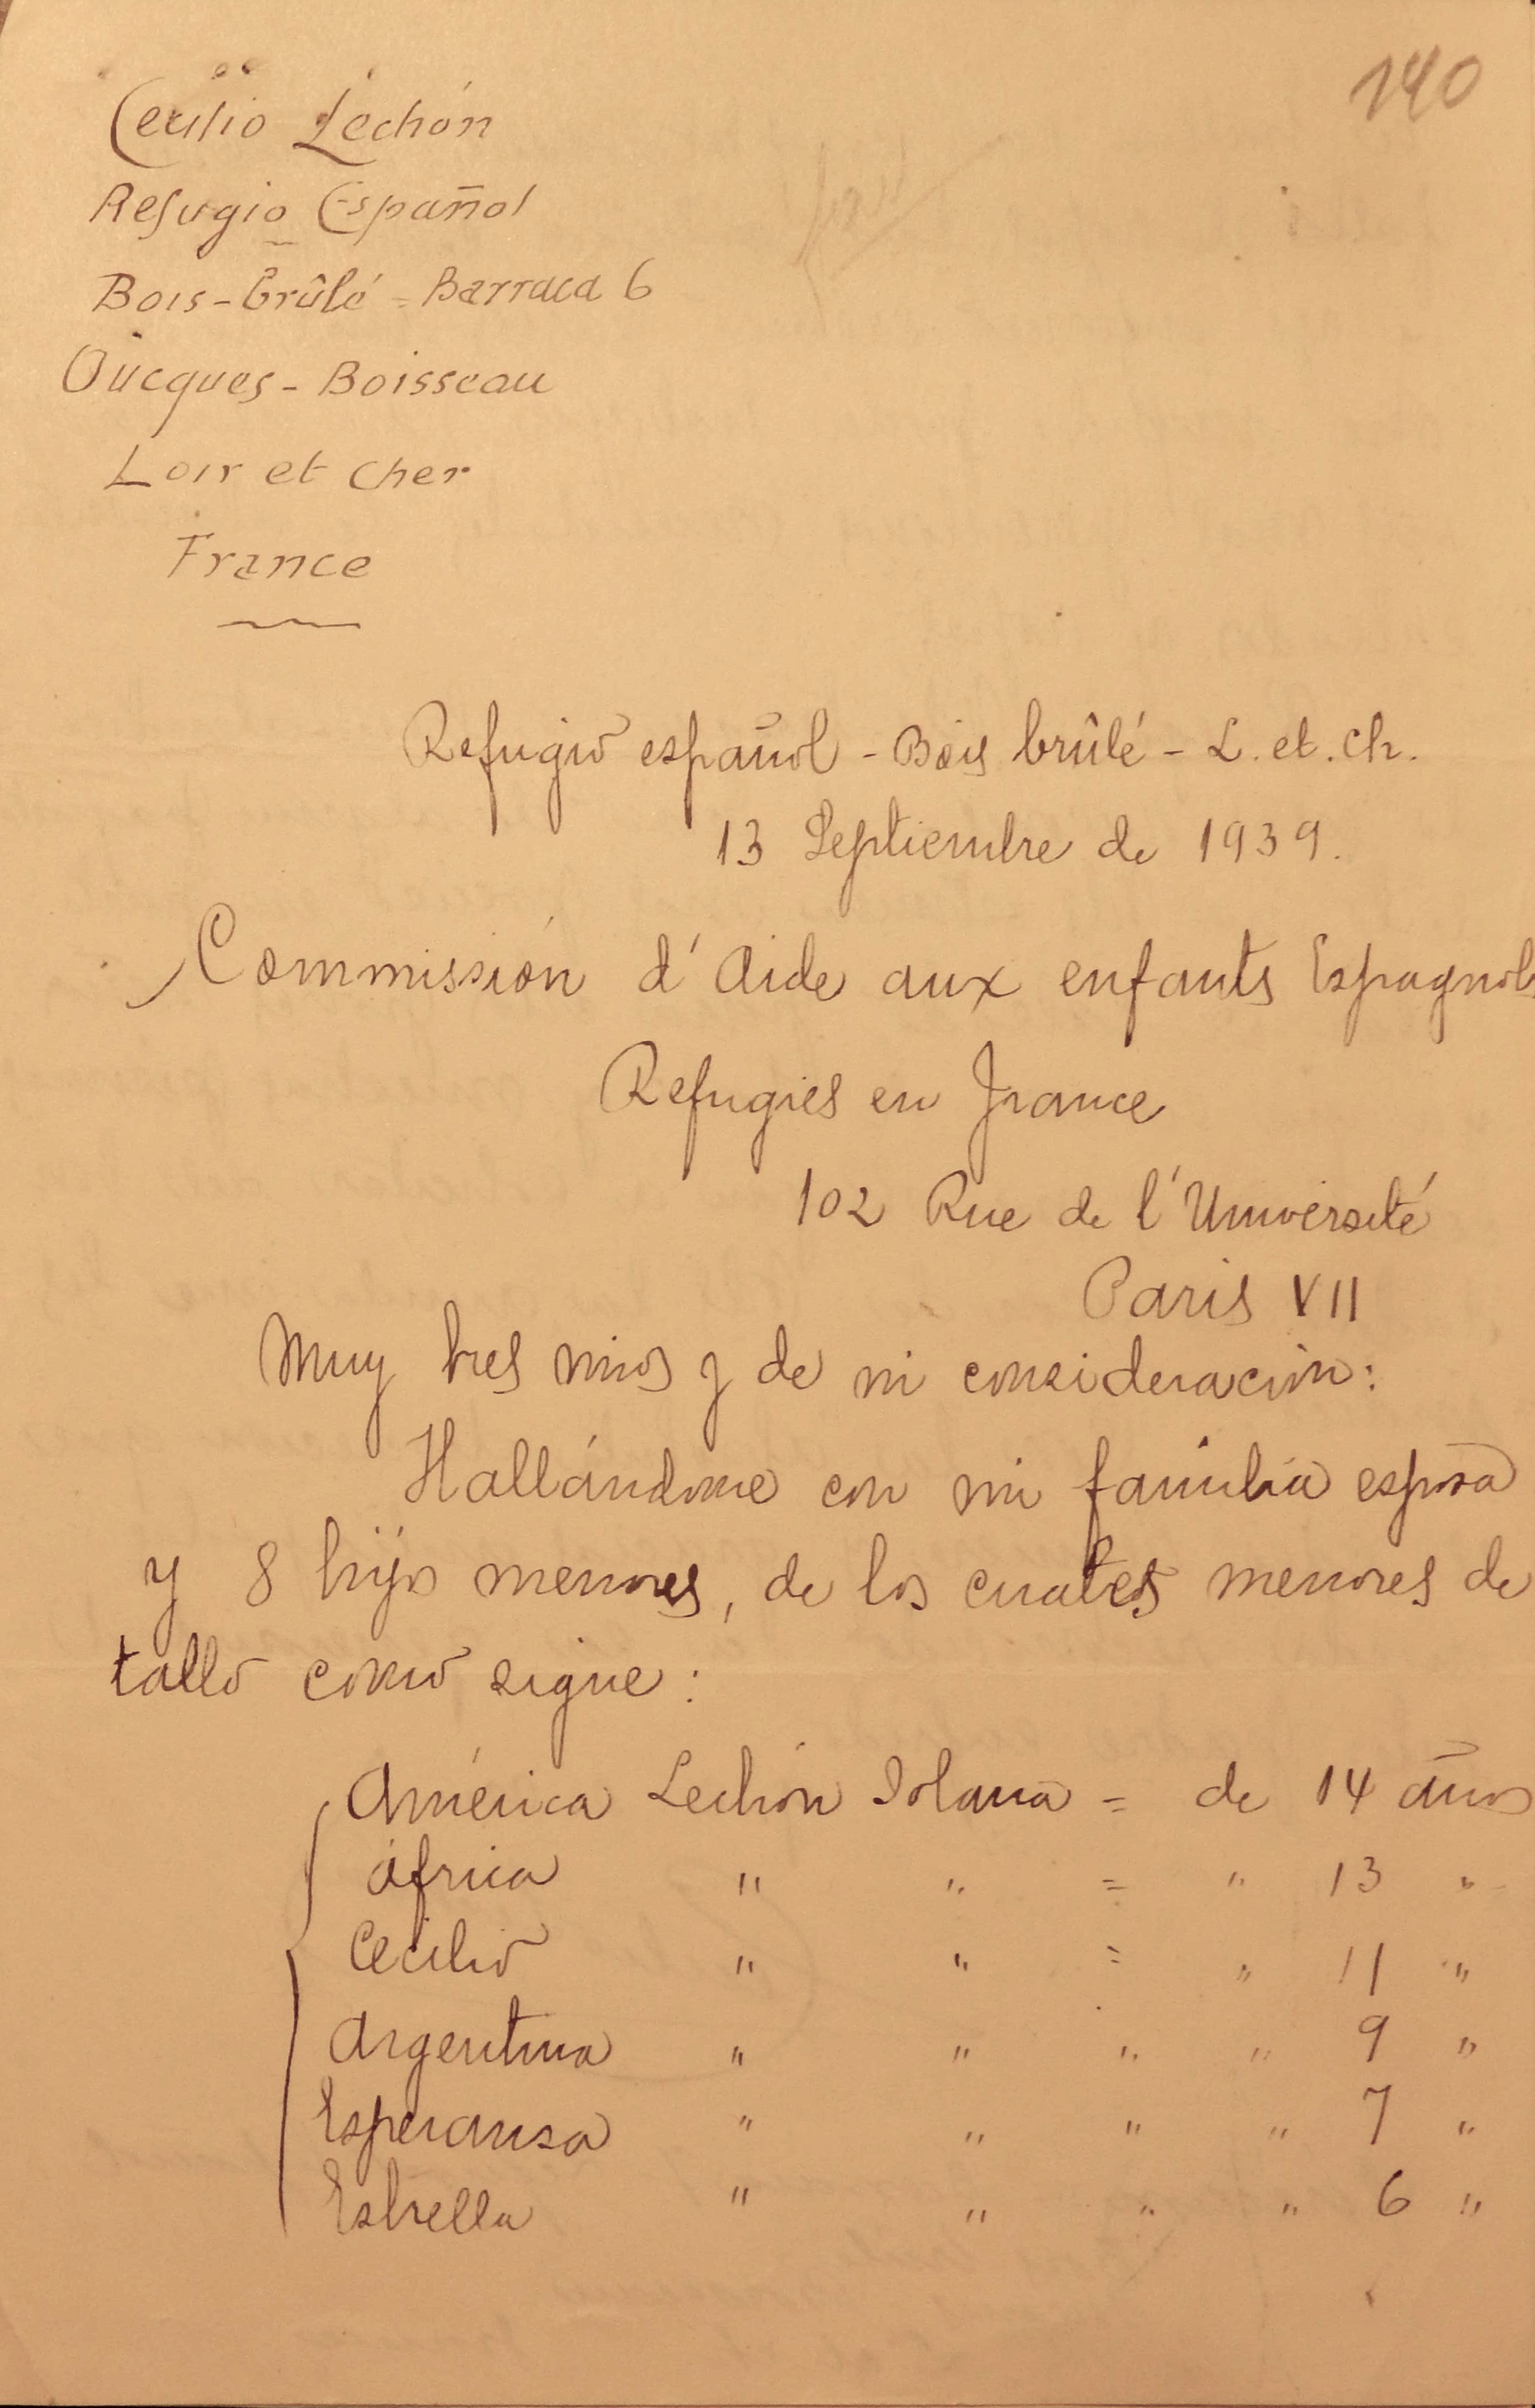 140
Cecilio Lechón
Refugio Español
Bois-brûlé = Barraca 6
Oucques - Boisseau
Loir et Cher
France
Refugio español - Bois brûlé - L. et. Ch.
13 Septiembre de 1939.
Commissión d'Aide aux enfants Espagnols
Refugies en France
102 Rue de l'Université
Paris VII
Muy Sres mios y de mi consideración:
Hallándome con mi familia esposa
y 8 hijos menores, de los cuales menores de
tallo como sigue:
América Lechón Solana = de 14 años
África " " = " 13 "
Cecilio " " = " 11 "
Argentina " " " " 9 "
Esperansa " " " " 7 "
Estrella " " " " 6 "